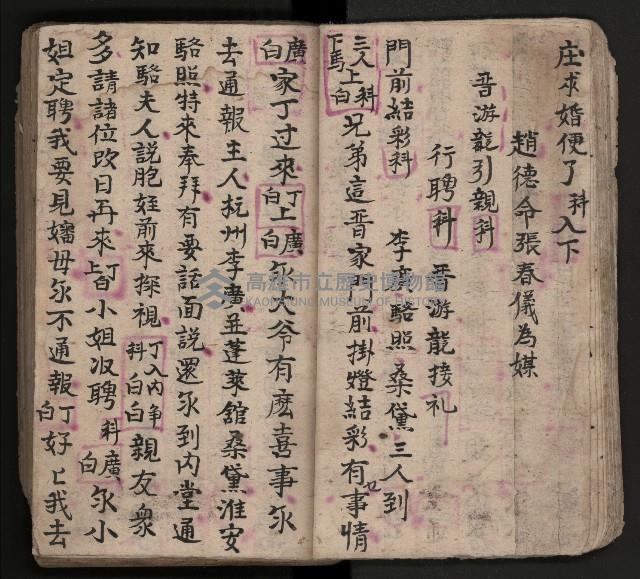 庄求婚便了科入下
趙德令張春儀為媒
晋游龍引親科
行聘科 晋游龍接礼
門前結彩科 李廣駱照桑黛三人到
三人上科下馬白兄弟這晋家門前掛燈結彩有乜事情
廣白家丁过來丁白上廣白尔大爷有庅喜事尔
去通報主人杭州李廣並蓬萊舘桑黛淮安
駱照特來奉拜有要話面説還尔到内堂通
知駱夫人説胞姪前來探視丁入内科白争白親友衆
多請諸位改日再來丁上白小姐収聘科廣白尔小
姐定聘我要見嬸母尔不通報丁白好〻我去
高雄市立歷史博物館
KAOHSIUNG MUSEUM OF HISTORY